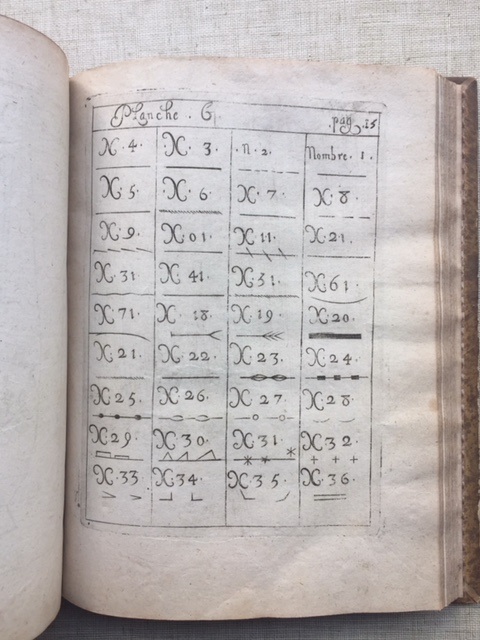 Planche . 6 pag. 15
N. 4. N. 3. .n. 2. Nombre. 1.
N. 5. N. 6. N. 7. N. 8.
N. 9. N. 01. N. 11. N. 21.
N. 31 N. 41. N. 51. N. 61.
N. 71. N. 18. N. 19. N. 20.
N. 21. N. 22. N. 23. N. 24.
N. 25. N. 26. N. 27. N. 28.
N. 29. N. 30. N. 31. N. 32.
N. 33 N. 34. N. 35. N. 36.